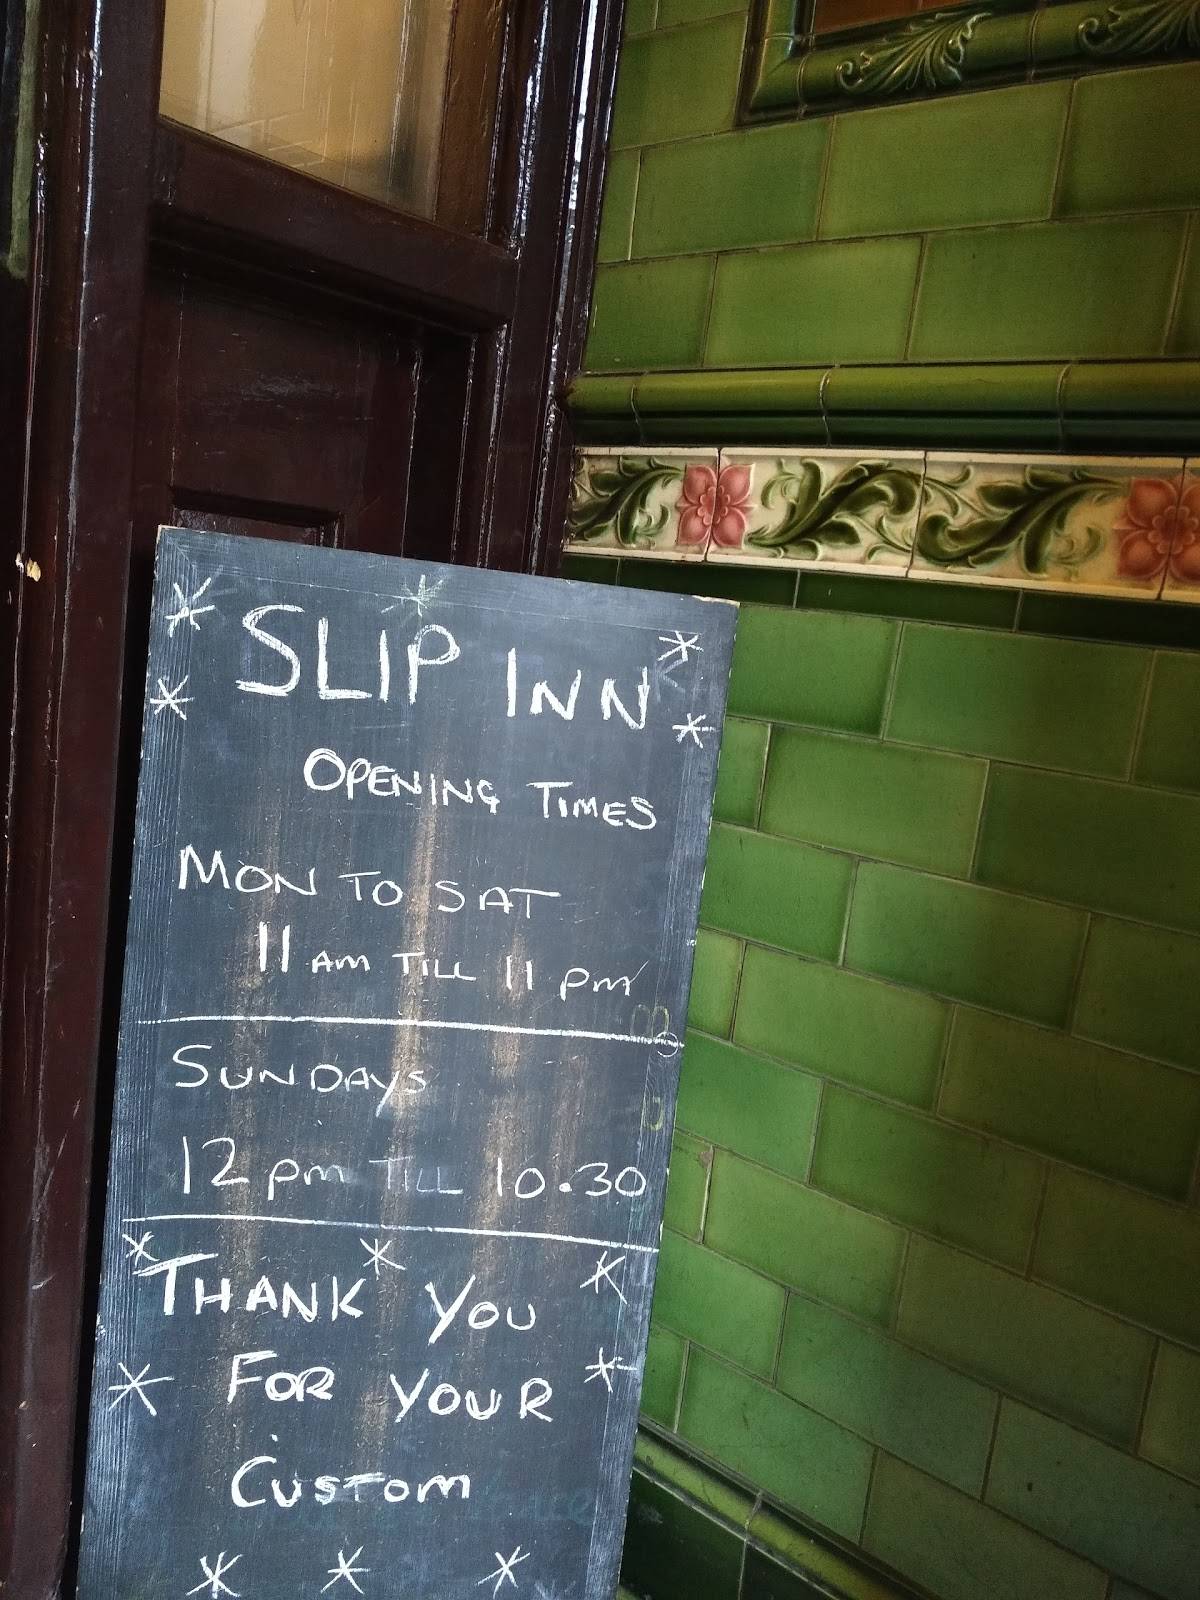 SLIP INN
OPENING TIMES
MON TO SAT
11 AM TILL 11 pm
SUNDAYS
12 pm TILL 10.30
THANK YOU
FOR YOUR
CUSTOM